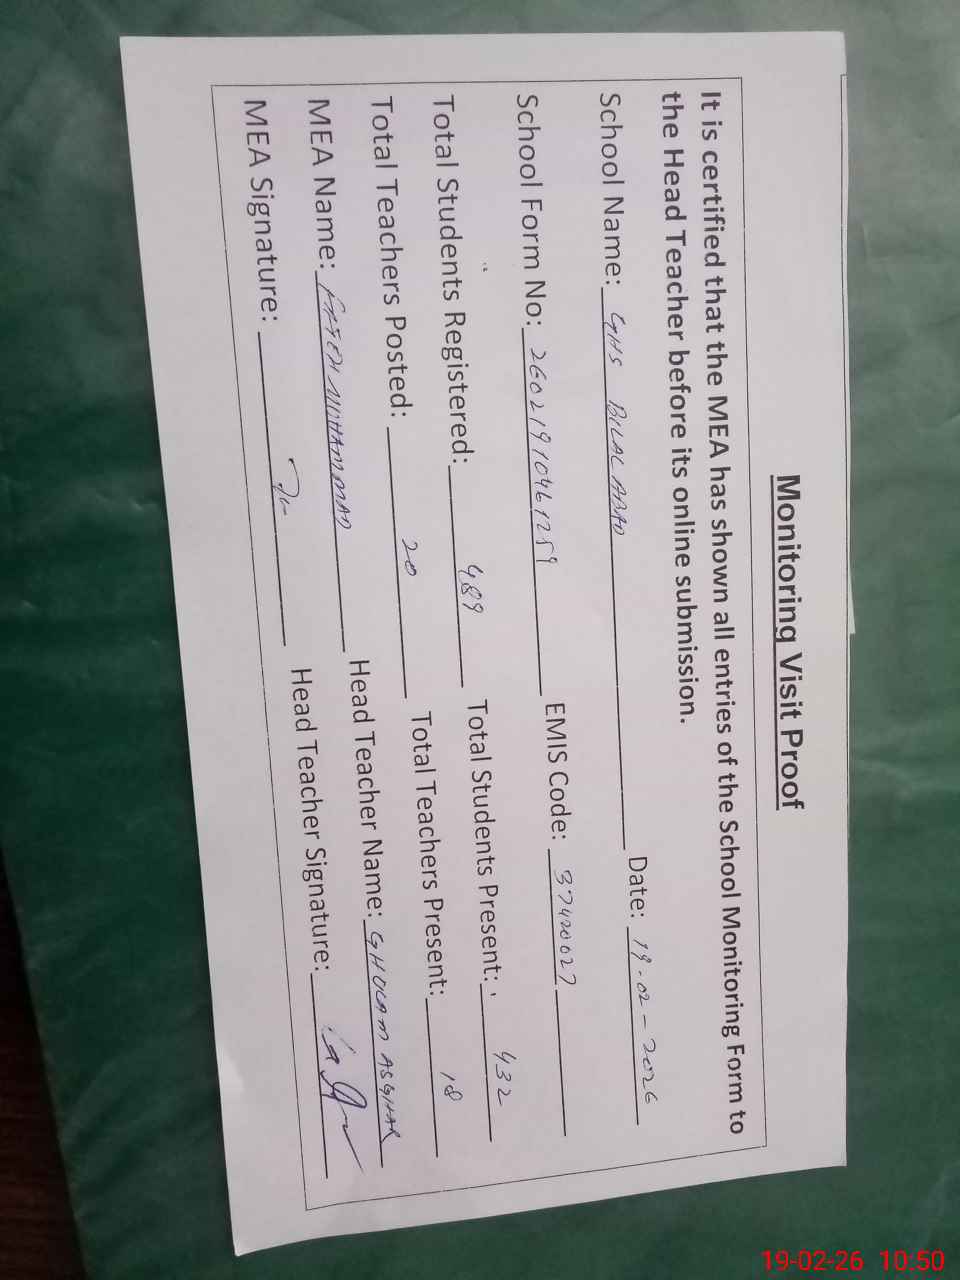 Monitoring Visit Proof
It is certified that the MEA has shown all entries of the School Monitoring Form to
the Head Teacher before its online submission.
School Name: GHS BILAL ABAD Date: 19-02-2026
School Form No: 26021910461259 EMIS Code: 37420027
Total Students Registered: 489 Total Students Present: 432
Total Teachers Posted: 20 Total Teachers Present: 18
MEA Name: FATEH MUHAMMAD Head Teacher Name: GHULAM ASGHAR
MEA Signature: Head Teacher Signature:
19-02-26 10:50